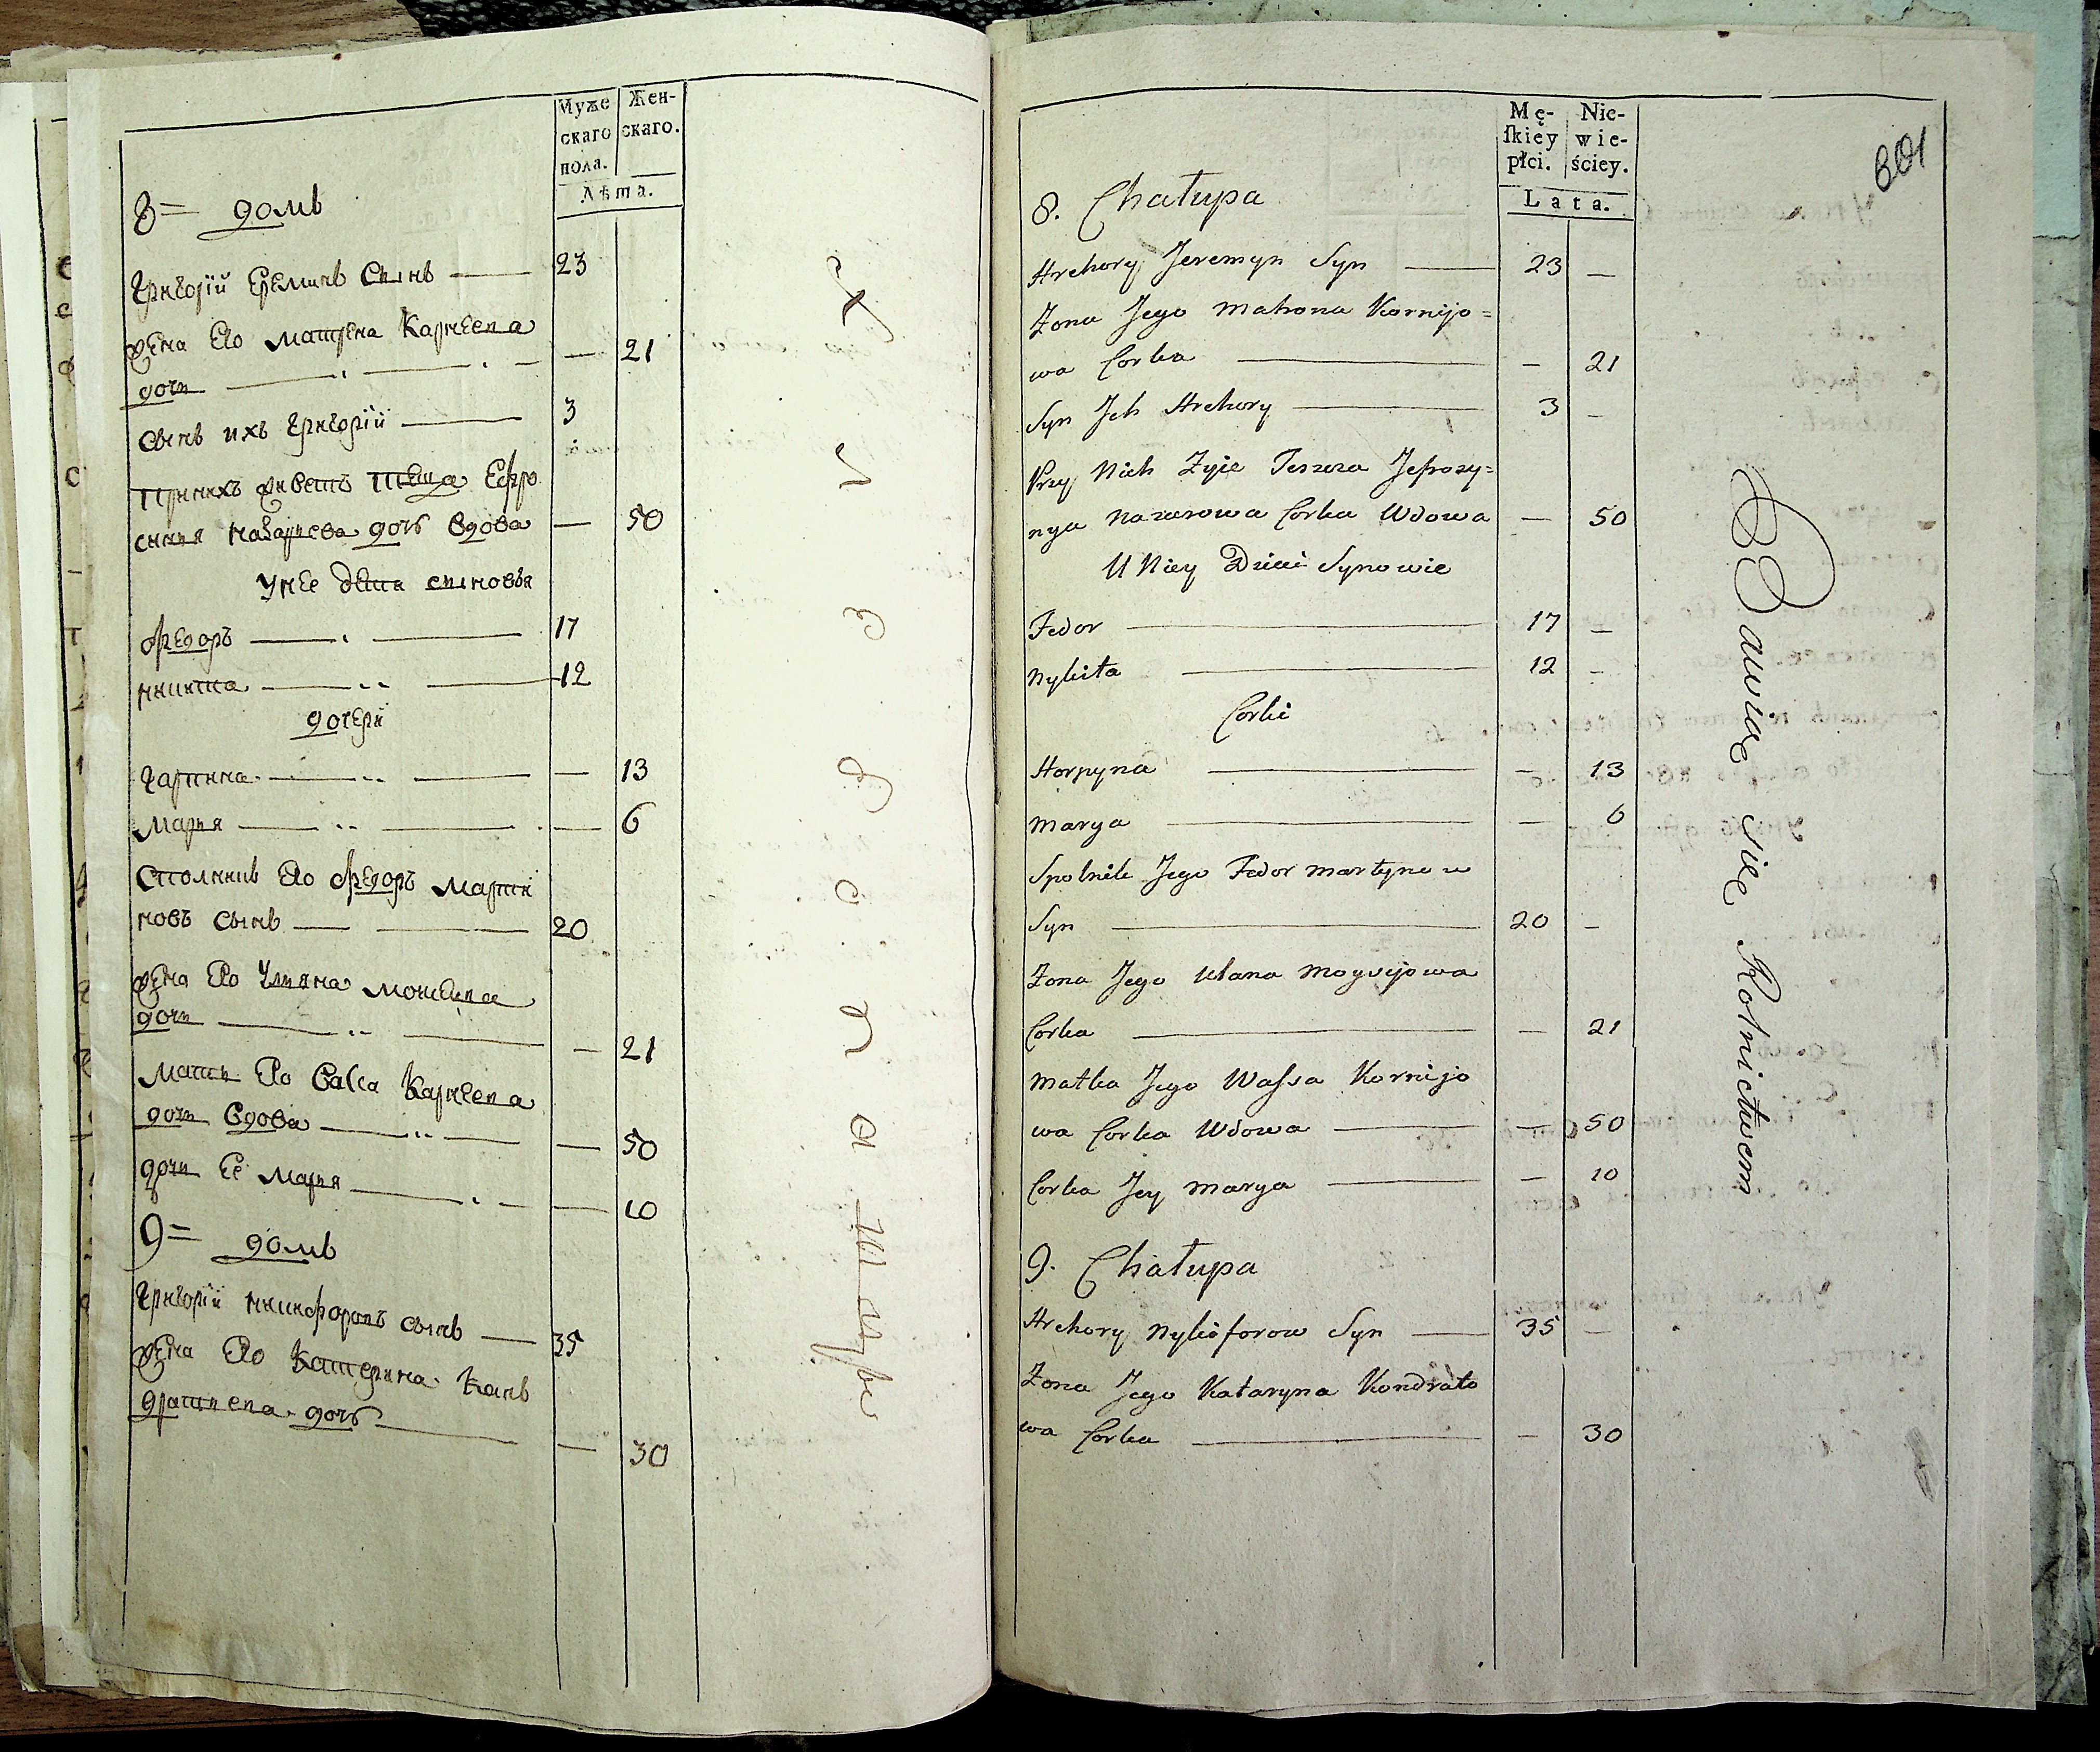 Муже Жен-
скаго скаго.
пола.
Лѣта.
8= домъ
Григорій Еремѣевъ Сынъ — 23
Жена Его Матрена Карнеева
дочь — — 21
Сынъ ихъ Григорій — 3
При нихъ живетъ теща Ефро
синия Назариева дочь Вдова — 50
У нее дети сыновья
Федоръ — 17
Никита — 12
дочери
Гарпина — — 13
Марья — — 6
Столникъ Его Федоръ Марти
новъ Сынъ — 20
Жена Его Уляна Мойсеева
дочь — — 21
Мати Его Васса Карнеева
дочь Вдова — — 50
дочь Ее Марья — — 10
9= домъ
Григорій Никифоровъ Сынъ — 35
Жена Его Катерина Кань
дратиева дочь — — 30
Хлебопашцы
Mę- Nie-
ſkiey wie-
płci. ściey.
Lata.
801
8. Chałupa
Hrehory Jeremyn Syn — 23 —
Zona Jego Matrona Kornijo=
wa Corka — — 21
Syn Jch Hrehory — 3 —
Przy Nich Zyie Teszcza Jefrozy=
nya Nazarowa Corka Wdowa — 50
U Niey Dzieci Synowie
Fedor — 17 —
Nykita — 12 —
Corki
Horpyna — — 13
Marya — — 6
Spolnik Jego Fedor Martynow
Syn — 20 —
Zona Jego Ulana Moysijowa
Corka — — 21
Matka Jego Waſsa Kornijo
wa Corka Wdowa — — 50
Corka Jey Marya — — 10
9. Chałupa
Hrehory Nykiforow Syn — 35 —
Zona Jego Kataryna Kondrato
wa Corka — — 30
Bawią sie Rolnictwem